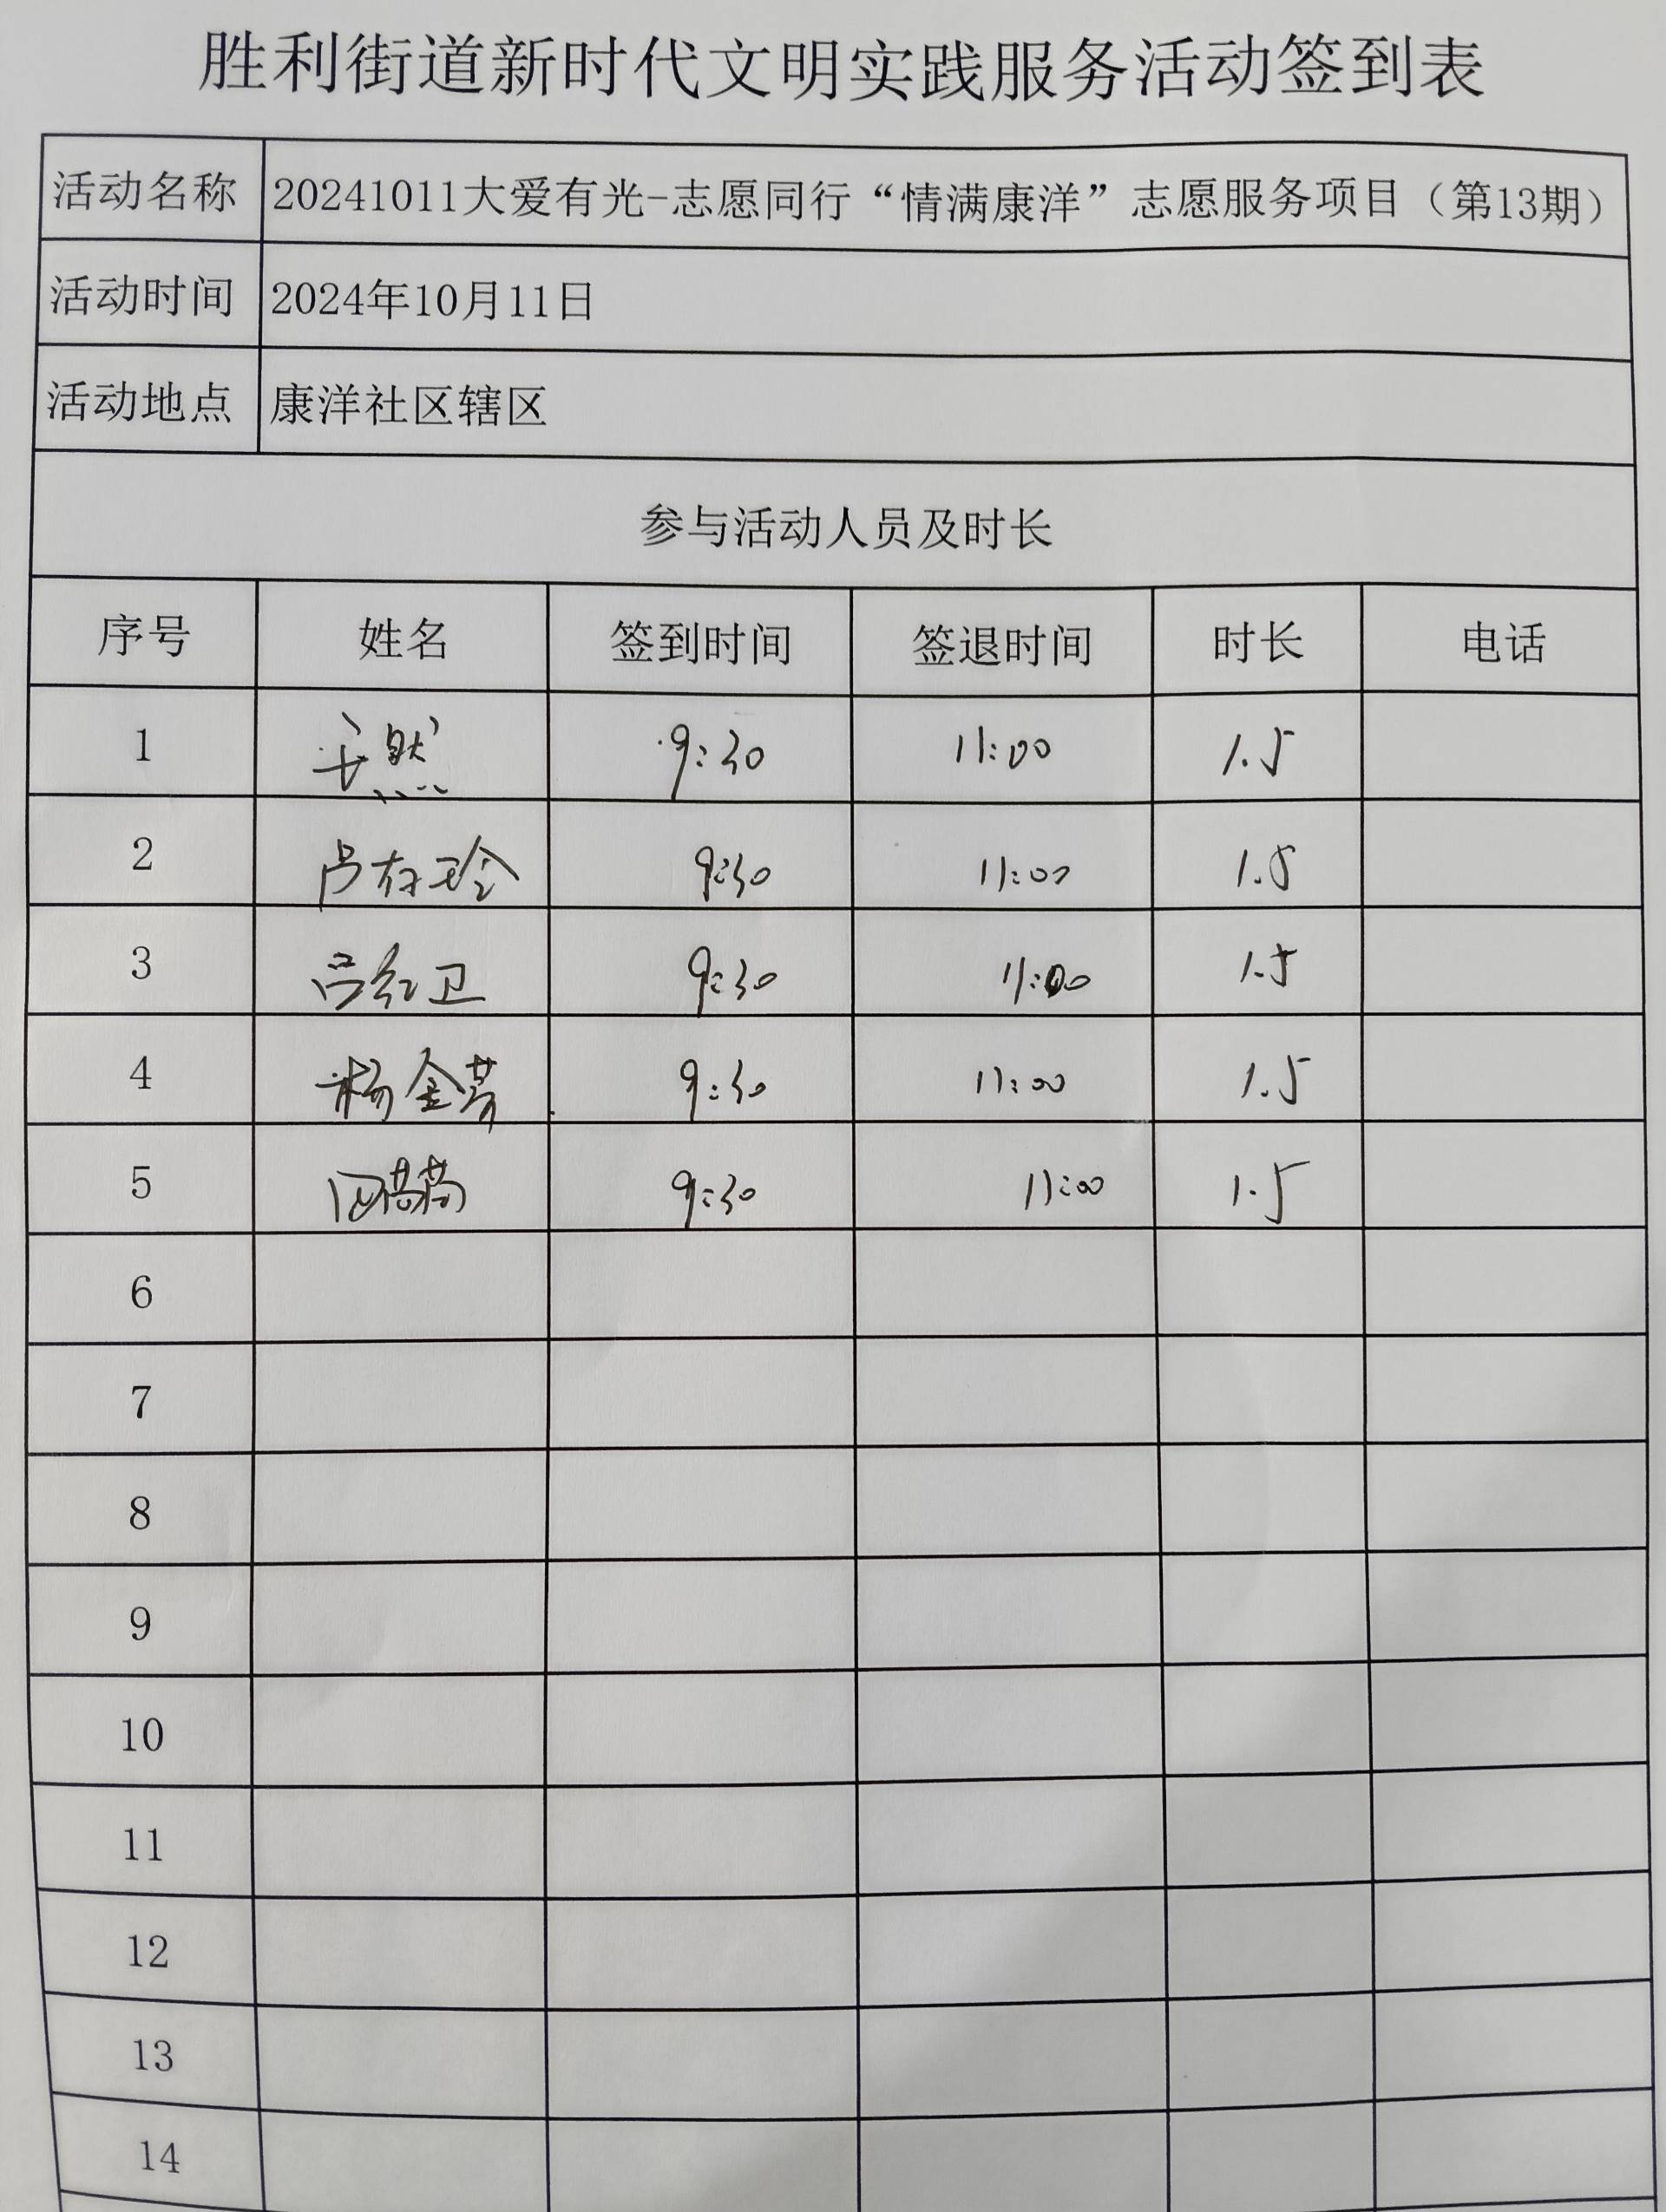 胜利街道新时代文明实践服务活动签到表
活动名称 20241011大爱有光-志愿同行“情满康洋”志愿服务项目（第13期）
活动时间 2024年10月11日
活动地点 康洋社区辖区
参与活动人员及时长
序号 姓名 签到时间 签退时间 时长 电话
1 9:30 11:00 1.5
2 9:30 11:00 1.5
3 吕红卫 9:30 11:00 1.5
4 杨金 9:30 11:00 1.5
5 9:30 11:00 1.5
6
7
8
9
10
11
12
13
14